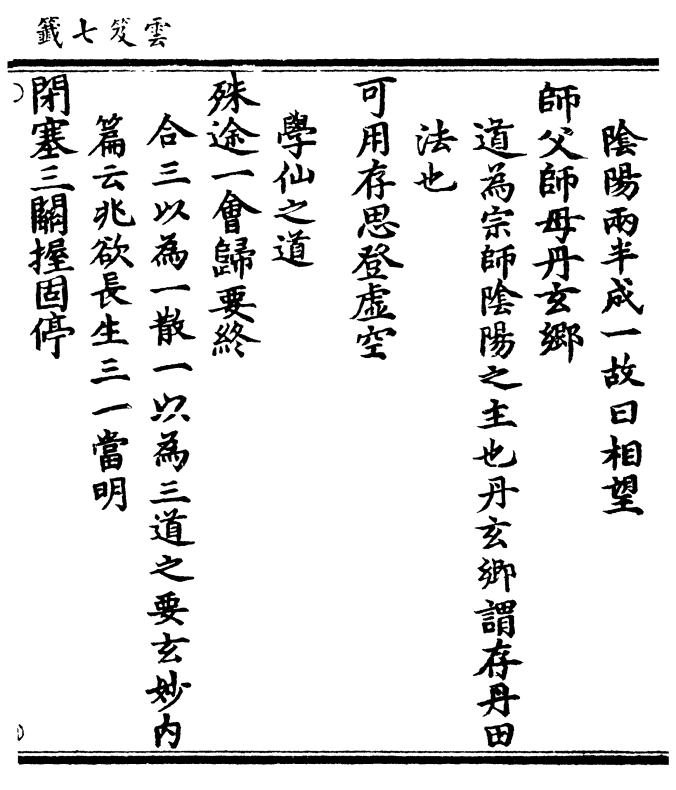 雲笈七籤
陰陽兩半成一故曰相望
師父師母丹玄鄉
道為宗師陰陽之主也丹玄鄉謂存丹田
法也
可用存思登虛空
學仙之道
殊途一會歸要終
合三以為一散一以為三道之要玄妙內
篇云兆欲長生三一當明
閉塞三關握固停